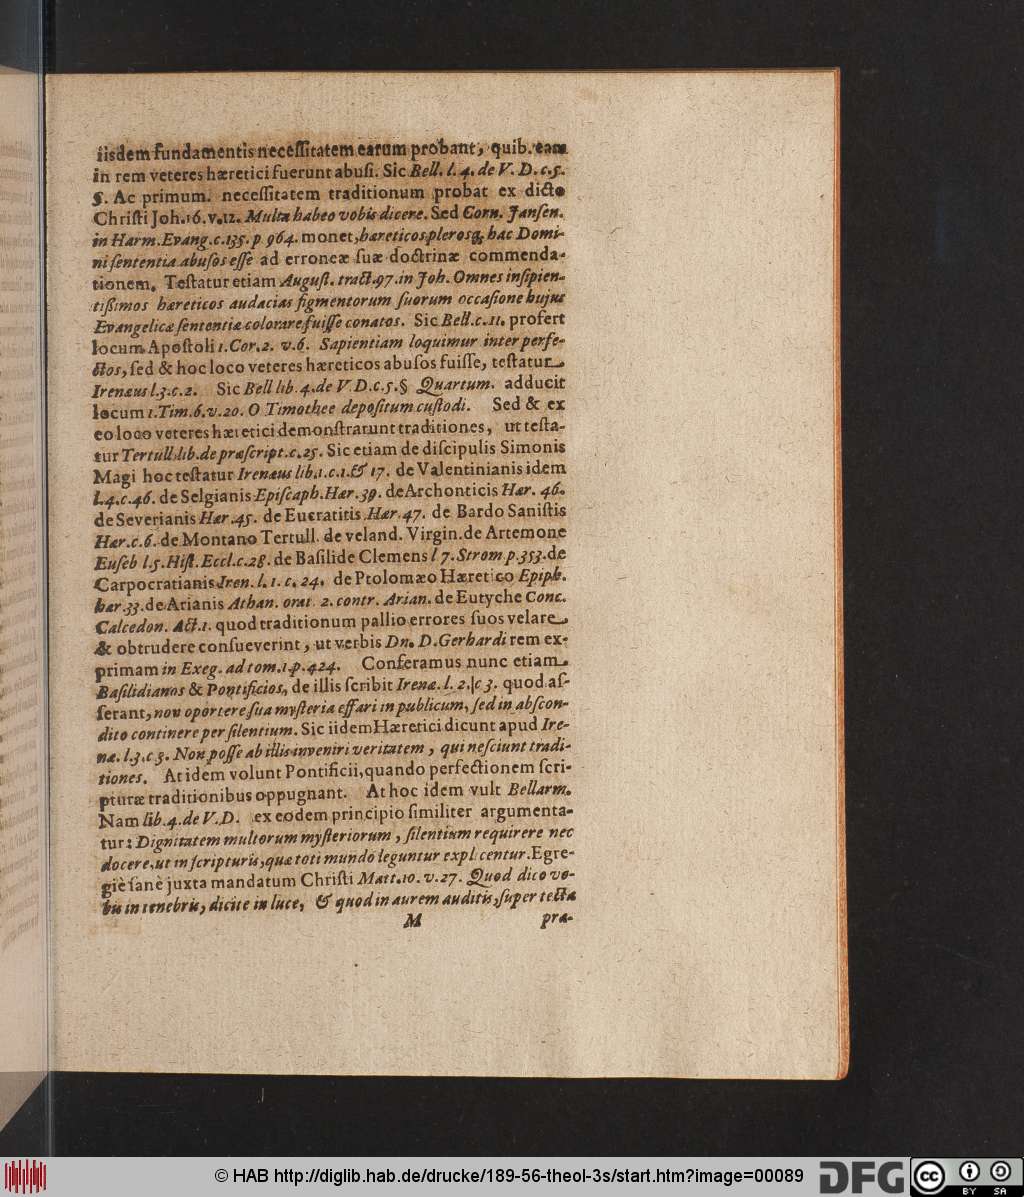 iisdem fundamentis necessitatem earum probant, quib. eam
in rem veteres hæretici fuerunt abusi. Sic Bell. l. 4. de V. D. c. 5.
§. Ac primum. necessitatem traditionum probat ex dicto
Christi Joh. 16. v. 12. Multa habeo vobis dicere. Sed Corn. Jansen.
in Harm. Evang. c. 135. p 964. monet, hæreticos plerosq; hac Domi-
ni sententia abusos esse ad erroneæ suæ doctrinæ commenda-
tionem. Testatur etiam August. tract. 97. in Joh. Omnes insipien-
tissimos hæreticos audacias figmentorum suorum occasione hujus
Evangelicæ sententiæ colorare fuisse conatos. Sic Bell. c. 11. profert
locum Apostoli 1. Cor. 2. v. 6. Sapientiam loquimur inter perfe-
ctos, sed & hoc loco veteres hæreticos abusos fuisse, testatur
Irenæus l. 3. c. 2. Sic Bell lib. 4. de V D. c. 5. § Quartum. adducit
locum 1. Tim. 6. v. 20. O Timothee depositum custodi. Sed & ex
eo loco veteres hæretici demonstrarunt traditiones, ut testa-
tur Tertull. lib. de præscript. c. 25. Sic etiam de discipulis Simonis
Magi hoc testatur Irenæus lib. 1. c. 1. & 17. de Valentinianis idem
l. 4. c. 46. de Selgianis Episcaph. Hær. 39. de Archonticis Hær. 46.
de Severianis Hær. 45. de Eucratitis Hær. 47. de Bardo Sanistis
Hær. c. 6. de Montano Tertull. de veland. Virgin. de Artemone
Euseb l. 5. Hist. Eccl. c. 28. de Basilide Clemens l 7. Strom p. 353. de
Carpocratianis Iren. l. 1. c. 24. de Ptolomæo Hæretico Epiph.
hær 33. de Arianis Athan. orat 2. contr. Arian. de Eutyche Conc.
Calcedon. Act. 1. quod traditionum pallio errores suos velare
& obtrudere consueverint, ut verbis Dn. D. Gerhardi rem ex-
primam in Exeg. ad tom. 1. p. 424. Conferamus nunc etiam
Basilidianos & Pontificios, de illis scribit Irenæ. l. 2. c 3. quod as-
serant, non oportere sua mysteria effari in publicum, sed in abscon-
dito continere per silentium. Sic iidem Hæretici dicunt apud Ire-
næ. l. 3. c 3. Non posse ab illis inveniri veritatem, qui nesciunt tradi-
tiones. At idem volunt Pontificii, quando perfectionem scri-
pturæ traditionibus oppugnant. At hoc idem vult Bellarm.
Nam lib. 4. de V. D. ex eodem principio similiter argumenta-
tur: Dignitatem multorum mysteriorum, silentium requirere nec
docere, ut in scripturis, quæ toti mundo leguntur explicentur. Egre-
giè sanè juxta mandatum Christi Matt. 10. v. 27. Quod dico vo-
bis in tenebris, dicite in luce, & quod in aurem auditis, super tecta
M præ-
© HAB http://diglib.hab.de/drucke/189-56-theol-3s/start.htm?image=00089
DFG
cc BY SA